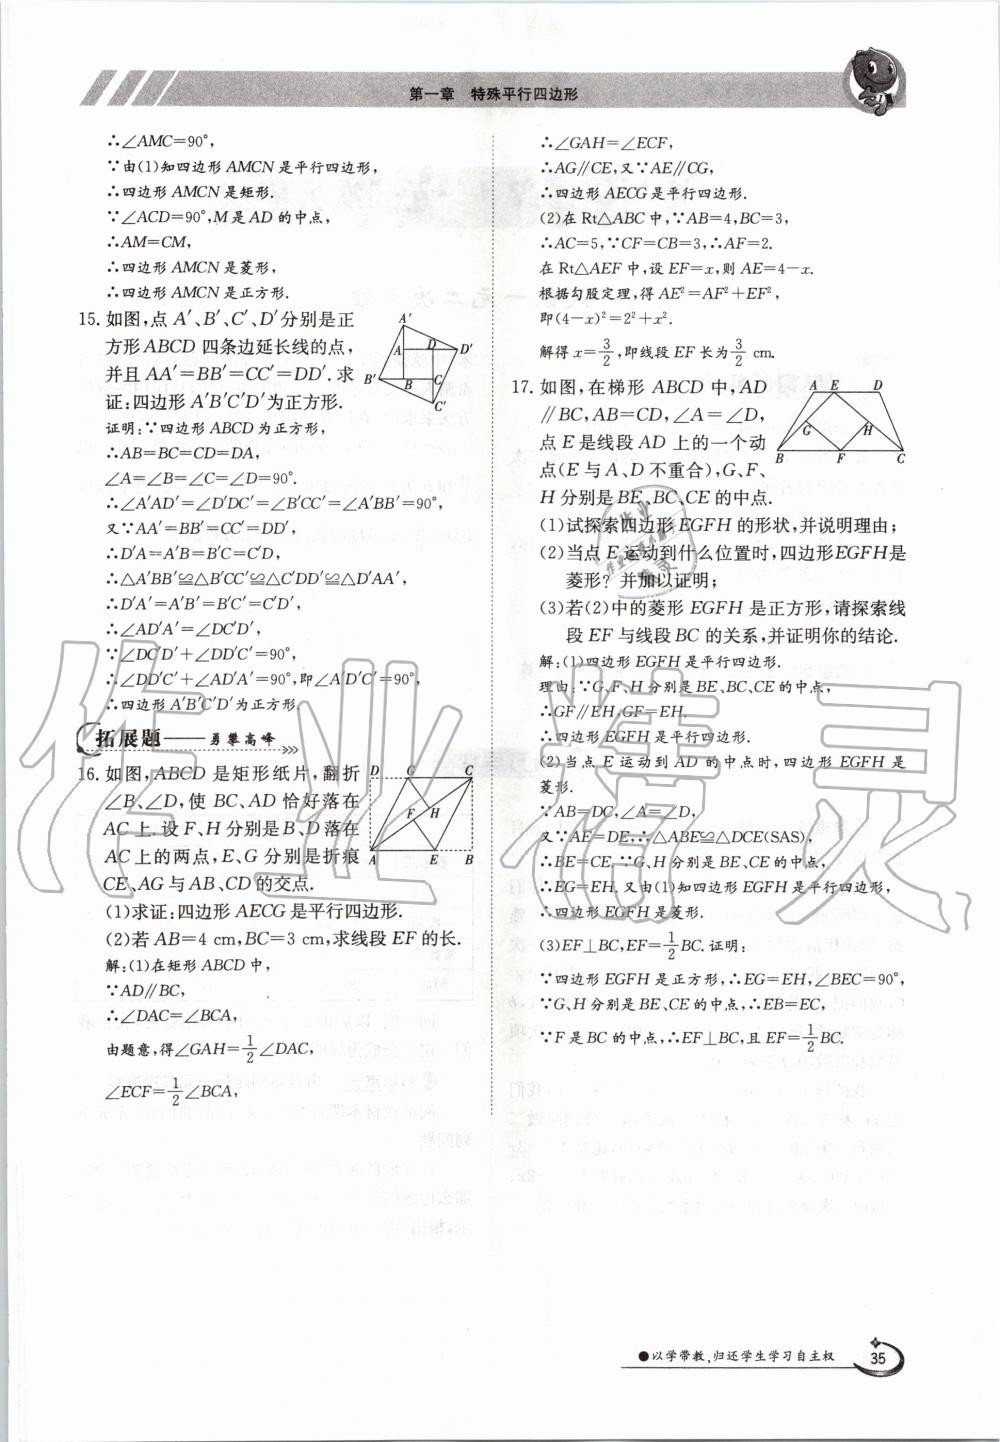 第一章 特殊平行四边形
∴∠AMC=90°,
∵由(1)知四边形AMCN是平行四边形,
∴四边形AMCN是矩形.
∵∠ACD=90°,M是AD的中点,
∴AM=CM,
∴四边形AMCN是菱形,
∴四边形AMCN是正方形.
15.如图,点A′、B′、C′、D′分别是正
方形ABCD四条边延长线的点,
并且AA′=BB′=CC′=DD′.求
证:四边形A′B′C′D′为正方形.
A′
A D D′
B′ B C
C′
证明:∵四边形ABCD为正方形,
∴AB=BC=CD=DA,
∠A=∠B=∠C=∠D=90°.
∴∠A′AD′=∠D′DC′=∠B′CC′=∠A′BB′=90°,
又∵AA′=BB′=CC′=DD′,
∴D′A=A′B=B′C=C′D,
∴△A′BB′≌△B′CC′≌△C′DD′≌△D′AA′,
∴D′A′=A′B′=B′C′=C′D′,
∴∠AD′A′=∠DC′D′,
∵∠DC′D′+∠DD′C′=90°,
∴∠DD′C′+∠AD′A′=90°,即∠A′D′C′=90°,
∴四边形A′B′C′D′为正方形.
拓展题——勇攀高峰
16.如图,ABCD是矩形纸片,翻折
∠B、∠D,使BC、AD恰好落在
AC上.设F、H分别是B、D落在
AC上的两点,E、G分别是折痕
CE、AG与AB、CD的交点.
D G C
F H
A E B
(1)求证:四边形AECG是平行四边形.
(2)若AB=4 cm,BC=3 cm,求线段EF的长.
解:(1)在矩形ABCD中,
∵AD∥BC,
∴∠DAC=∠BCA,
由题意,得∠GAH=1/2∠DAC,
∠ECF=1/2∠BCA,
∴∠GAH=∠ECF.
∴AG∥CE,又∵AE∥CG,
∴四边形AECG是平行四边形.
(2)在Rt△ABC中,∵AB=4,BC=3,
∴AC=5,∵CF=CB=3,∴AF=2.
在Rt△AEF中,设EF=x,则AE=4-x.
根据勾股定理,得AE²=AF²+EF²,
即(4-x)²=2²+x².
解得x=3/2,即线段EF长为3/2 cm.
17.如图,在梯形ABCD中,AD
∥BC,AB=CD,∠A=∠D,
点E是线段AD上的一个动
点(E与A、D不重合),G、F、
H分别是BE、BC、CE的中点.
A E D
G H
B F C
(1)试探索四边形EGFH的形状,并说明理由;
(2)当点E运动到什么位置时,四边形EGFH是
菱形?并加以证明;
(3)若(2)中的菱形EGFH是正方形,请探索线
段EF与线段BC的关系,并证明你的结论.
解:(1)四边形EGFH是平行四边形.
理由:∵G、F、H分别是BE、BC、CE的中点,
∴GF∥EH,GF=EH.
∴四边形EGFH是平行四边形.
(2)当点E运动到AD的中点时,四边形EGFH是
菱形.
∵AB=DC,∠A=∠D,
又∵AE=DE,∴△ABE≌△DCE(SAS),
∴BE=CE,∵G、H分别是BE、CE的中点,
∴EG=EH,又由(1)知四边形EGFH是平行四边形,
∴四边形EGFH是菱形.
(3)EF⊥BC,EF=1/2BC.证明:
∵四边形EGFH是正方形,∴EG=EH,∠BEC=90°,
∵G、H分别是BE、CE的中点,∴EB=EC,
∵F是BC的中点,∴EF⊥BC,且EF=1/2BC.
作业精灵
●以学带教,归还学生学习自主权
35